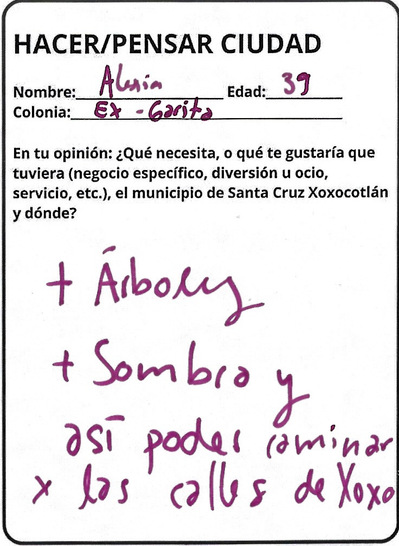 HACER/PENSAR CIUDAD
Nombre: Alexia Edad: 39
Colonia: Ex - Garita
En tu opinión: ¿Qué necesita, o qué te gustaría que
tuviera (negocio específico, diversión u ocio,
servicio, etc.), el municipio de Santa Cruz Xoxocotlán
y dónde?
+ Árboles
+ Sombra y
así poder caminar
x las calles de Xoxo